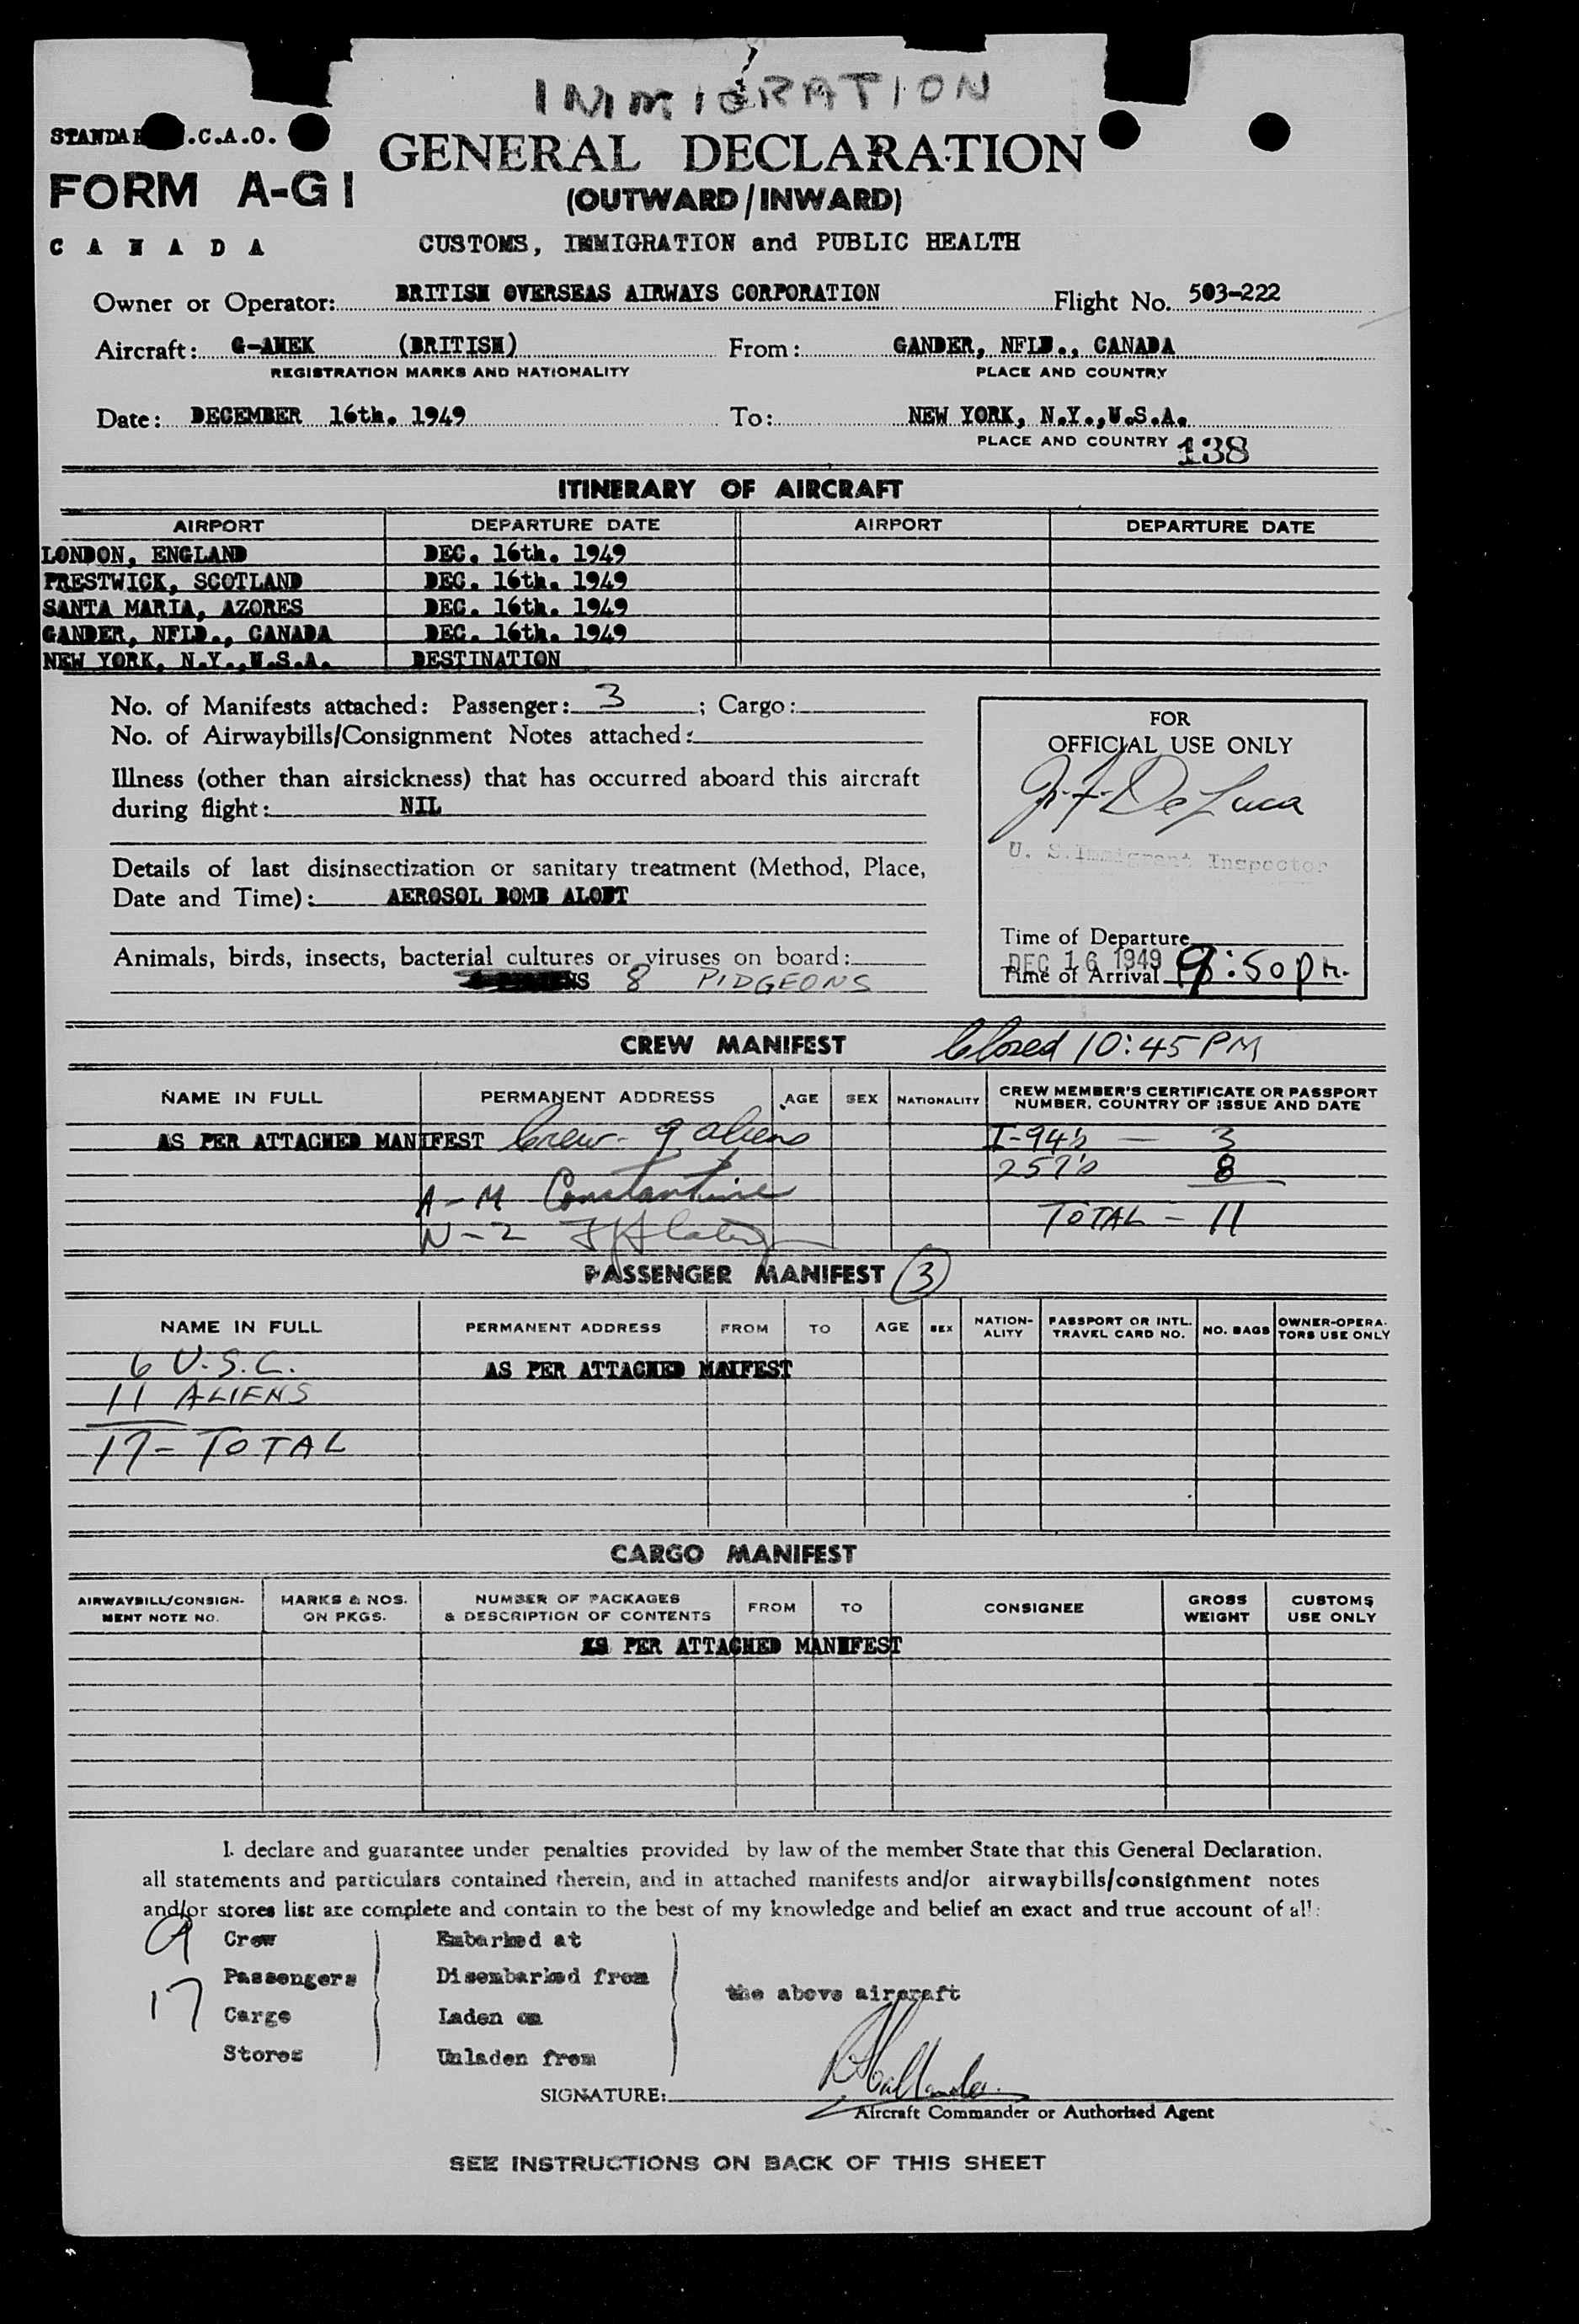 INMIGRATION
STANDAR .C.A.O.
GENERAL DECLARATION
FORM A-G I
(OUTWARD/INWARD)
CANADA
CUSTOMS, IMMIGRATION and PUBLIC HEALTH
Owner or Operator: BRITISH OVERSEAS AIRWAYS CORPORATION Flight No. 503-222
Aircraft: G-AHEK (BRITISH) From: GANDER, NFLD., CANADA
REGISTRATION MARKS AND NATIONALITY PLACE AND COUNTRY
Date: DECEMBER 16th. 1949 To: NEW YORK, N.Y.,U.S.A.
PLACE AND COUNTRY 138
ITINERARY OF AIRCRAFT
AIRPORT DEPARTURE DATE AIRPORT DEPARTURE DATE
LONDON, ENGLAND DEC. 16th. 1949
PRESTWICK, SCOTLAND DEC. 16th. 1949
SANTA MARIA, AZORES DEC. 16th. 1949
GANDER, NFLD., CANADA DEC. 16th. 1949
NEW YORK, N.Y.,U.S.A. DESTINATION
No. of Manifests attached: Passenger: 3 ; Cargo:
No. of Airwaybills/Consignment Notes attached:
Illness (other than airsickness) that has occurred aboard this aircraft
during flight: NIL
Details of last disinsectization or sanitary treatment (Method, Place,
Date and Time): AEROSOL BOMB ALOFT
Animals, birds, insects, bacterial cultures or viruses on board:
8 PIDGEONS
FOR
OFFICIAL USE ONLY
J. F. De Luca
U. S. Immigrant Inspector
Time of Departure
DEC 16 1949
Time of Arrival 9:50 pm.
CREW MANIFEST Closed 10:45 PM
NAME IN FULL PERMANENT ADDRESS AGE SEX NATIONALITY CREW MEMBER'S CERTIFICATE OR PASSPORT
NUMBER, COUNTRY OF ISSUE AND DATE
AS PER ATTACHED MANIFEST Crew - 9 aliens I-94's — 3
257's 8
A-M Constantine
TOTAL - 11
N-Z
PASSENGER MANIFEST 3
NAME IN FULL PERMANENT ADDRESS FROM TO AGE SEX NATION-
ALITY PASSPORT OR INTL.
TRAVEL CARD NO. NO. BAGS OWNER-OPERA-
TORS USE ONLY
6 U.S.C. AS PER ATTACHED MAIFEST
11 ALIENS
17 - TOTAL
CARGO MANIFEST
AIRWAYBILL/CONSIGN-
MENT NOTE NO. MARKS & NOS.
ON PKGS. NUMBER OF PACKAGES
& DESCRIPTION OF CONTENTS FROM TO CONSIGNEE GROSS
WEIGHT CUSTOMS
USE ONLY
AS PER ATTACHED MANIFEST
I. declare and guarantee under penalties provided by law of the member State that this General Declaration.
all statements and particulars contained therein, and in attached manifests and/or airwaybills/consignment notes
and/or stores list are complete and contain to the best of my knowledge and belief an exact and true account of all:
9 Crew Embarked at
Passengers Disembarked from
the above aircraft
17 Cargo Laden on
Stores Unladen from
SIGNATURE:
Aircraft Commander or Authorized Agent
SEE INSTRUCTIONS ON BACK OF THIS SHEET